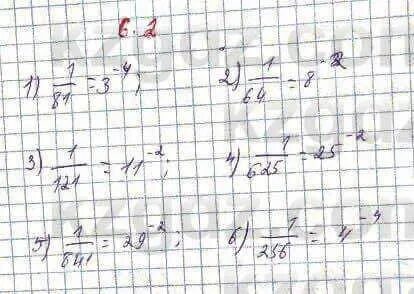 6.2
1) 1/81 = 3^-4; 2) 1/64 = 8^-2
3) 1/121 = 11^-2; 4) 1/625 = 25^-2
5) 1/841 = 29^-2; 6) 1/256 = 4^-4